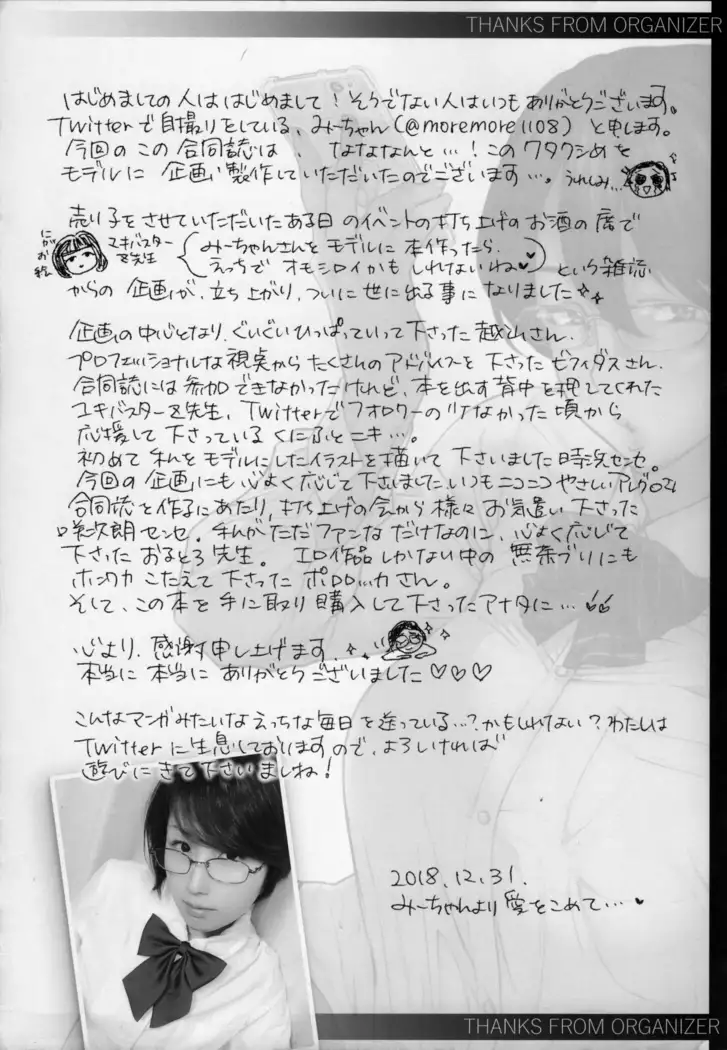 THANKS FROM ORGANIZER
はじめましての人ははじめまして!そうでない人はいつもありがとうございます。
Twitterで自撮りをしている、みーちゃん(@moremore1108)と申します。
今回のこの合同誌は、なななんと…!このワタクシめを
モデルに企画・製作していただいたのでございます…。うれしみ…
売り子をさせていただいたある日のイベントの打ち上げのお酒の席で
にがお絵
ユキバスターZ先生
みーちゃんさんをモデルに本作ったら、
えっちでオモシロイかもしれないね♥
という雑談
からの企画が、立ち上がり、ついに世に出る事になりました
企画の中心となり、ぐいぐいひっぱっていって下さった越山さん、
プロフェッショナルな視点からたくさんのアドバイスを下さったビフィダスさん、
合同誌には参加できなかったけれど、本を出す背中を押してくれた
ユキバスターZ先生、Twitterでフォロワーの少なかった頃から
応援して下さっているくにふとニキ…。
初めて私をモデルにしたイラストを描いて下さいました時浜センセ。
今回の企画にも心よく応じて下さいました、いつもニコニコやさしい
合同誌を作るにあたり、打ち上げの会から様々お気遣い下さった
次朗センセ。私がただファンなだけなのに、心よく応じて
下さったおるとろ先生。エロ作品しかない中の無茶ブリにも
ホンワカこたえて下さったポロロッカさん。
そして、この本を手に取り購入して下さったアナタに…
心より、感謝申し上げます
本当に本当にありがとうございました♡♡♡
こんなマンガみたいなえっちな毎日を送っている…?かもしれない?わたしは
Twitterに生息しておりますので、よろしければ
遊びにきて下さいましね!
2018.12.31.
みーちゃんより愛をこめて…♥
THANKS FROM ORGANIZER